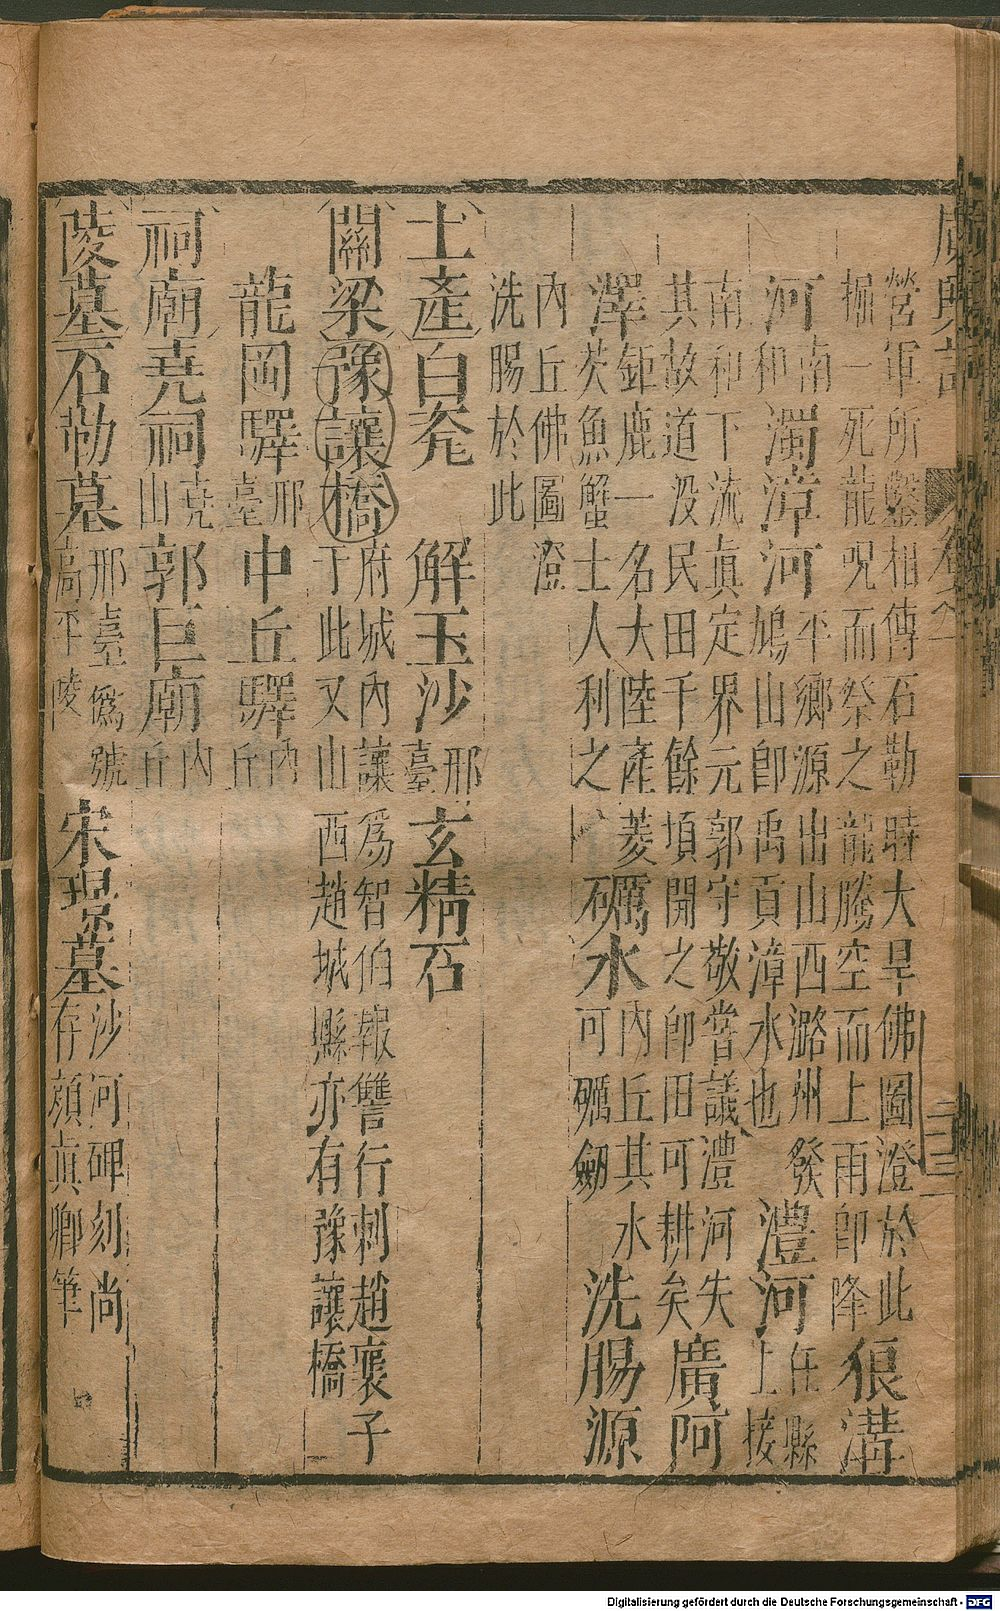 廣輿記 卷之
營軍所鑿相傳石勒時大旱佛圖澄於此
掘一死龍呪而祭之龍騰空而上雨卽降狼溝
河南和濁漳河平鄉源出山西潞州發鳩山卽禹貢漳水也澧河任縣上接
南和下流眞定界元郭守敬嘗議澧河失
其故道没民田千餘頃開之卽田可耕矣廣阿
澤鉅鹿一名大陸產菱芡魚蟹土人利之礪水內丘其水可礪劒洗腸源
內丘佛圖澄
洗腸於此
土產白瓷 解玉沙邢臺玄精石
關梁豫讓橋府城內讓爲智伯報讐行刺趙襄子
于此又山西趙城縣亦有豫讓橋
龍岡驛邢臺中丘驛內丘
祠廟堯祠堯山郭巨廟內丘
陵墓石勒墓邢臺僞號高平陵宋璟墓沙河碑刻尚存顏眞卿筆
Digitalisierung gefördert durch die Deutsche Forschungsgemeinschaft - DFG